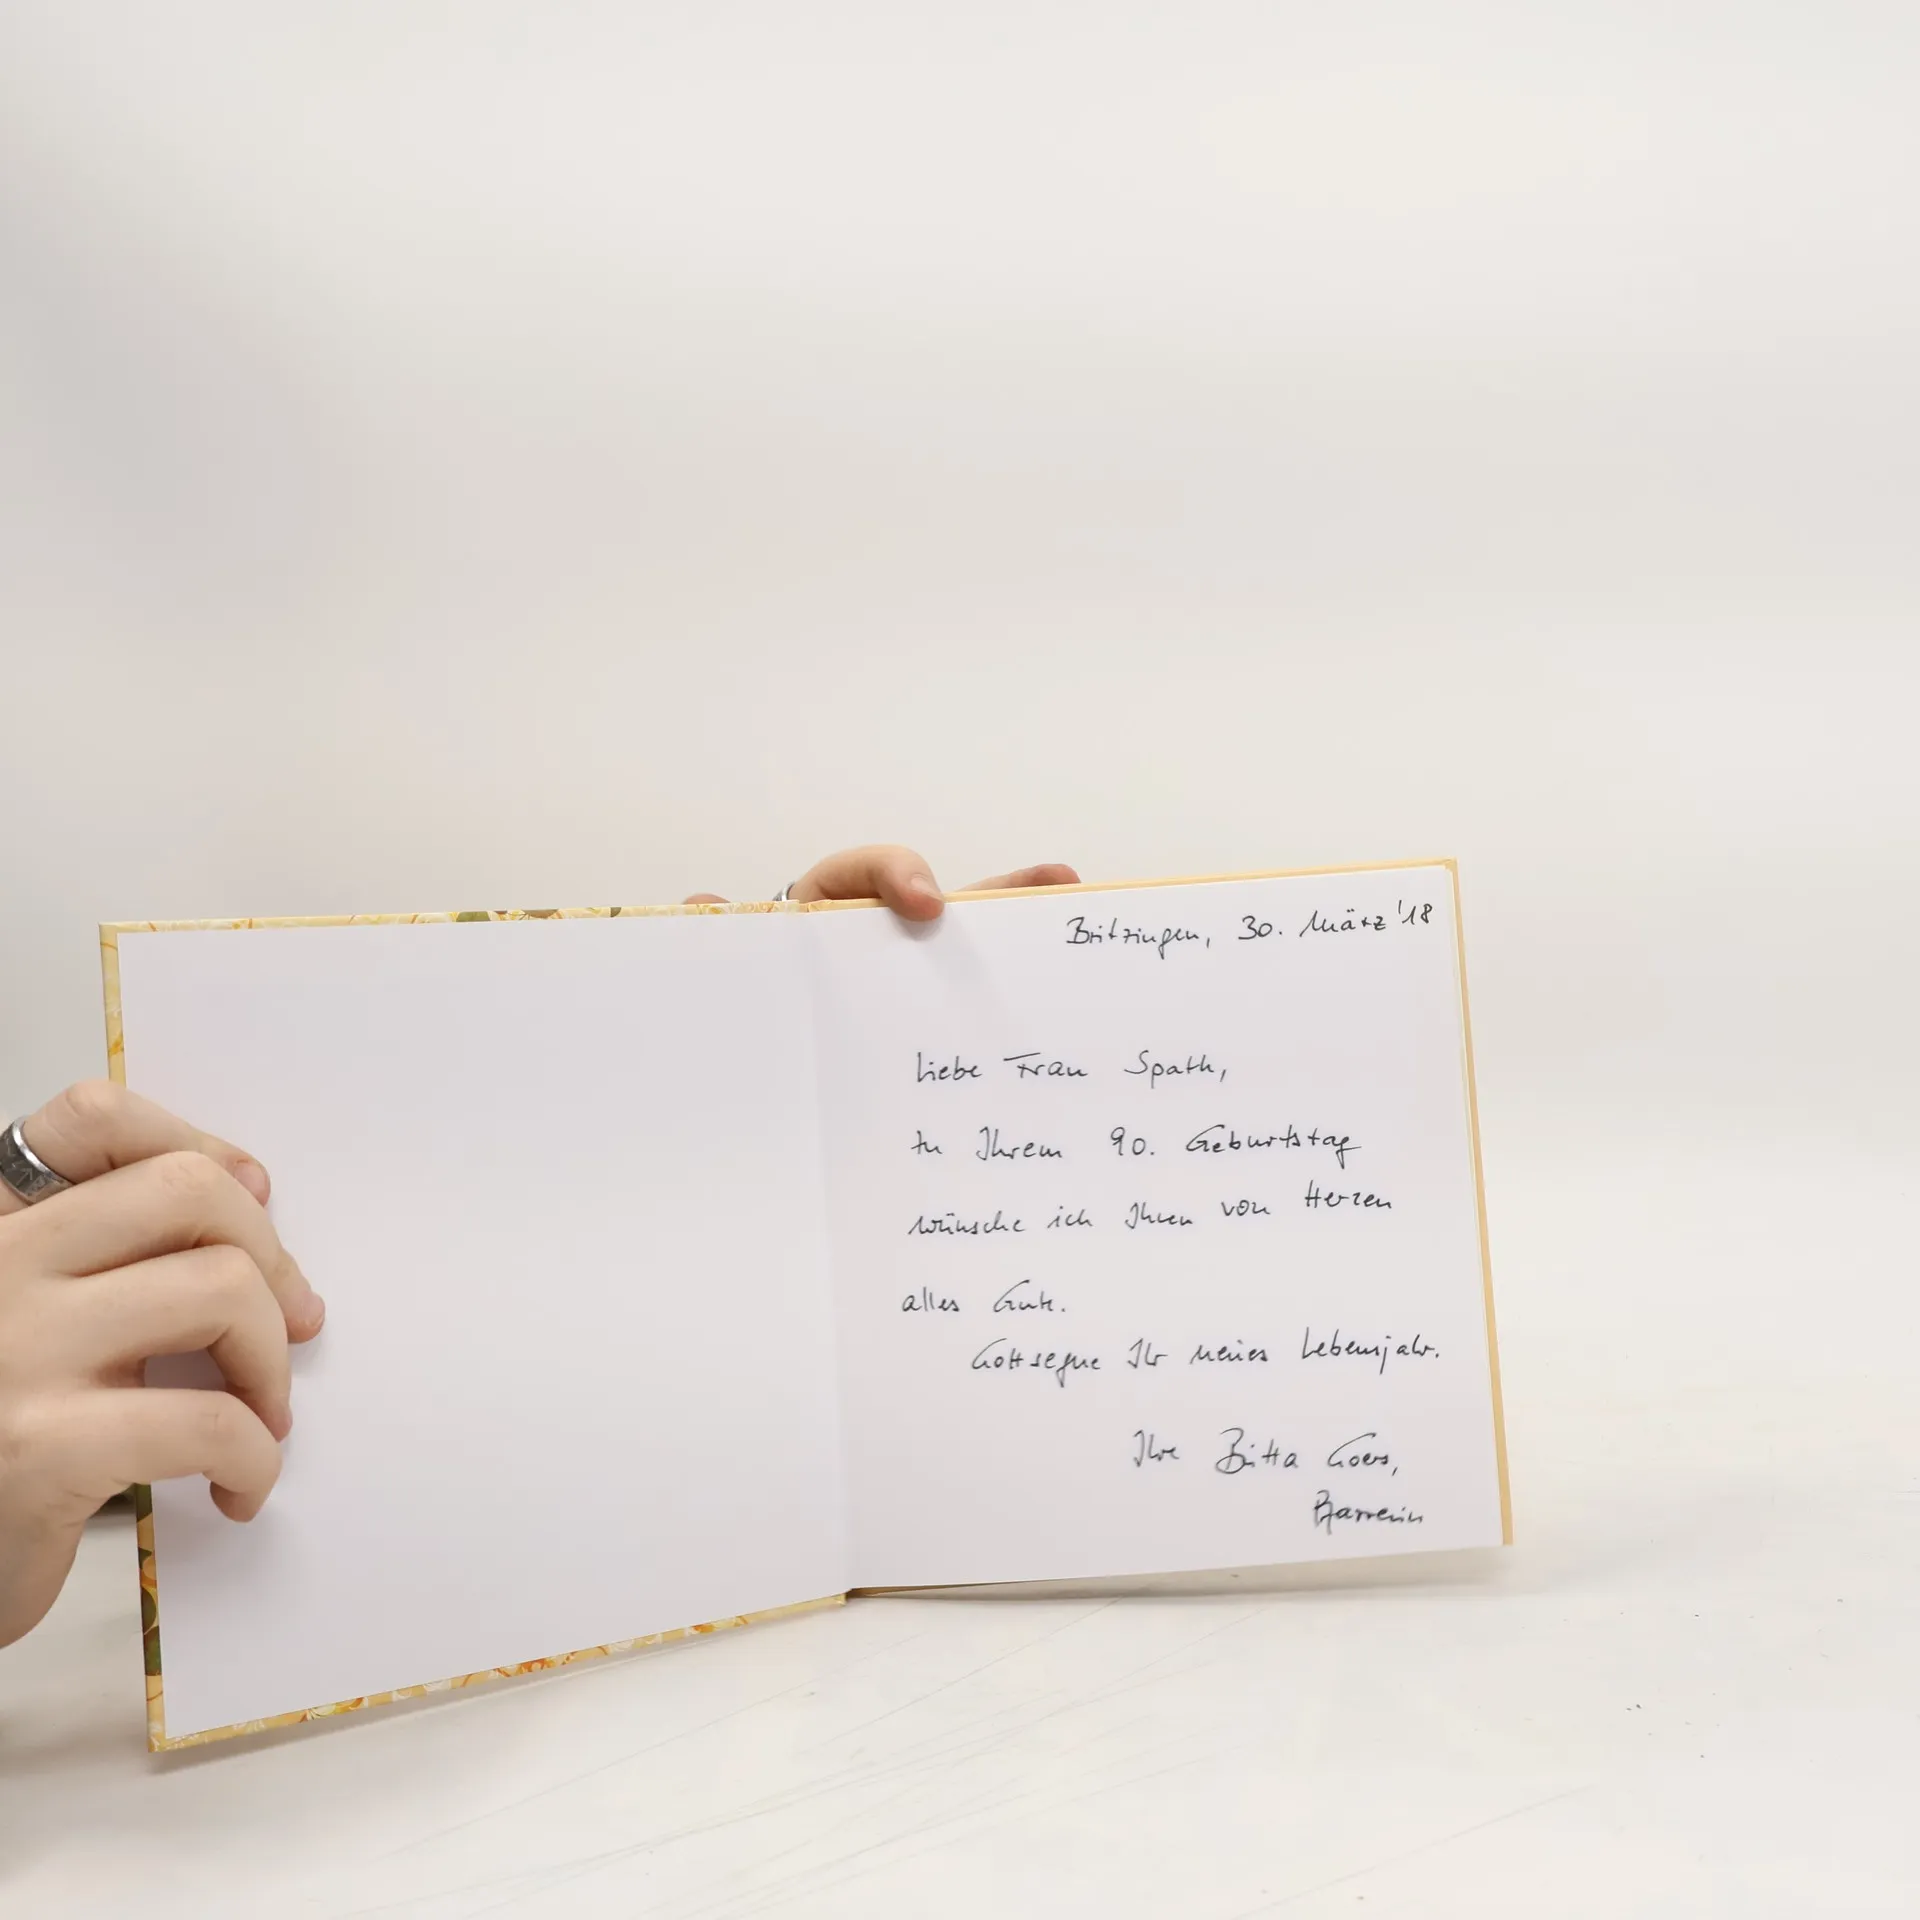 Britzingen, 30. März '18
Liebe Frau Spath,
zu Ihrem 90. Geburtstag
wünsche ich Ihnen von Herzen
alles Gute.
Gott segne Ihr neues Lebensjahr.
Ihre Britta Goers,
Pfarrerin